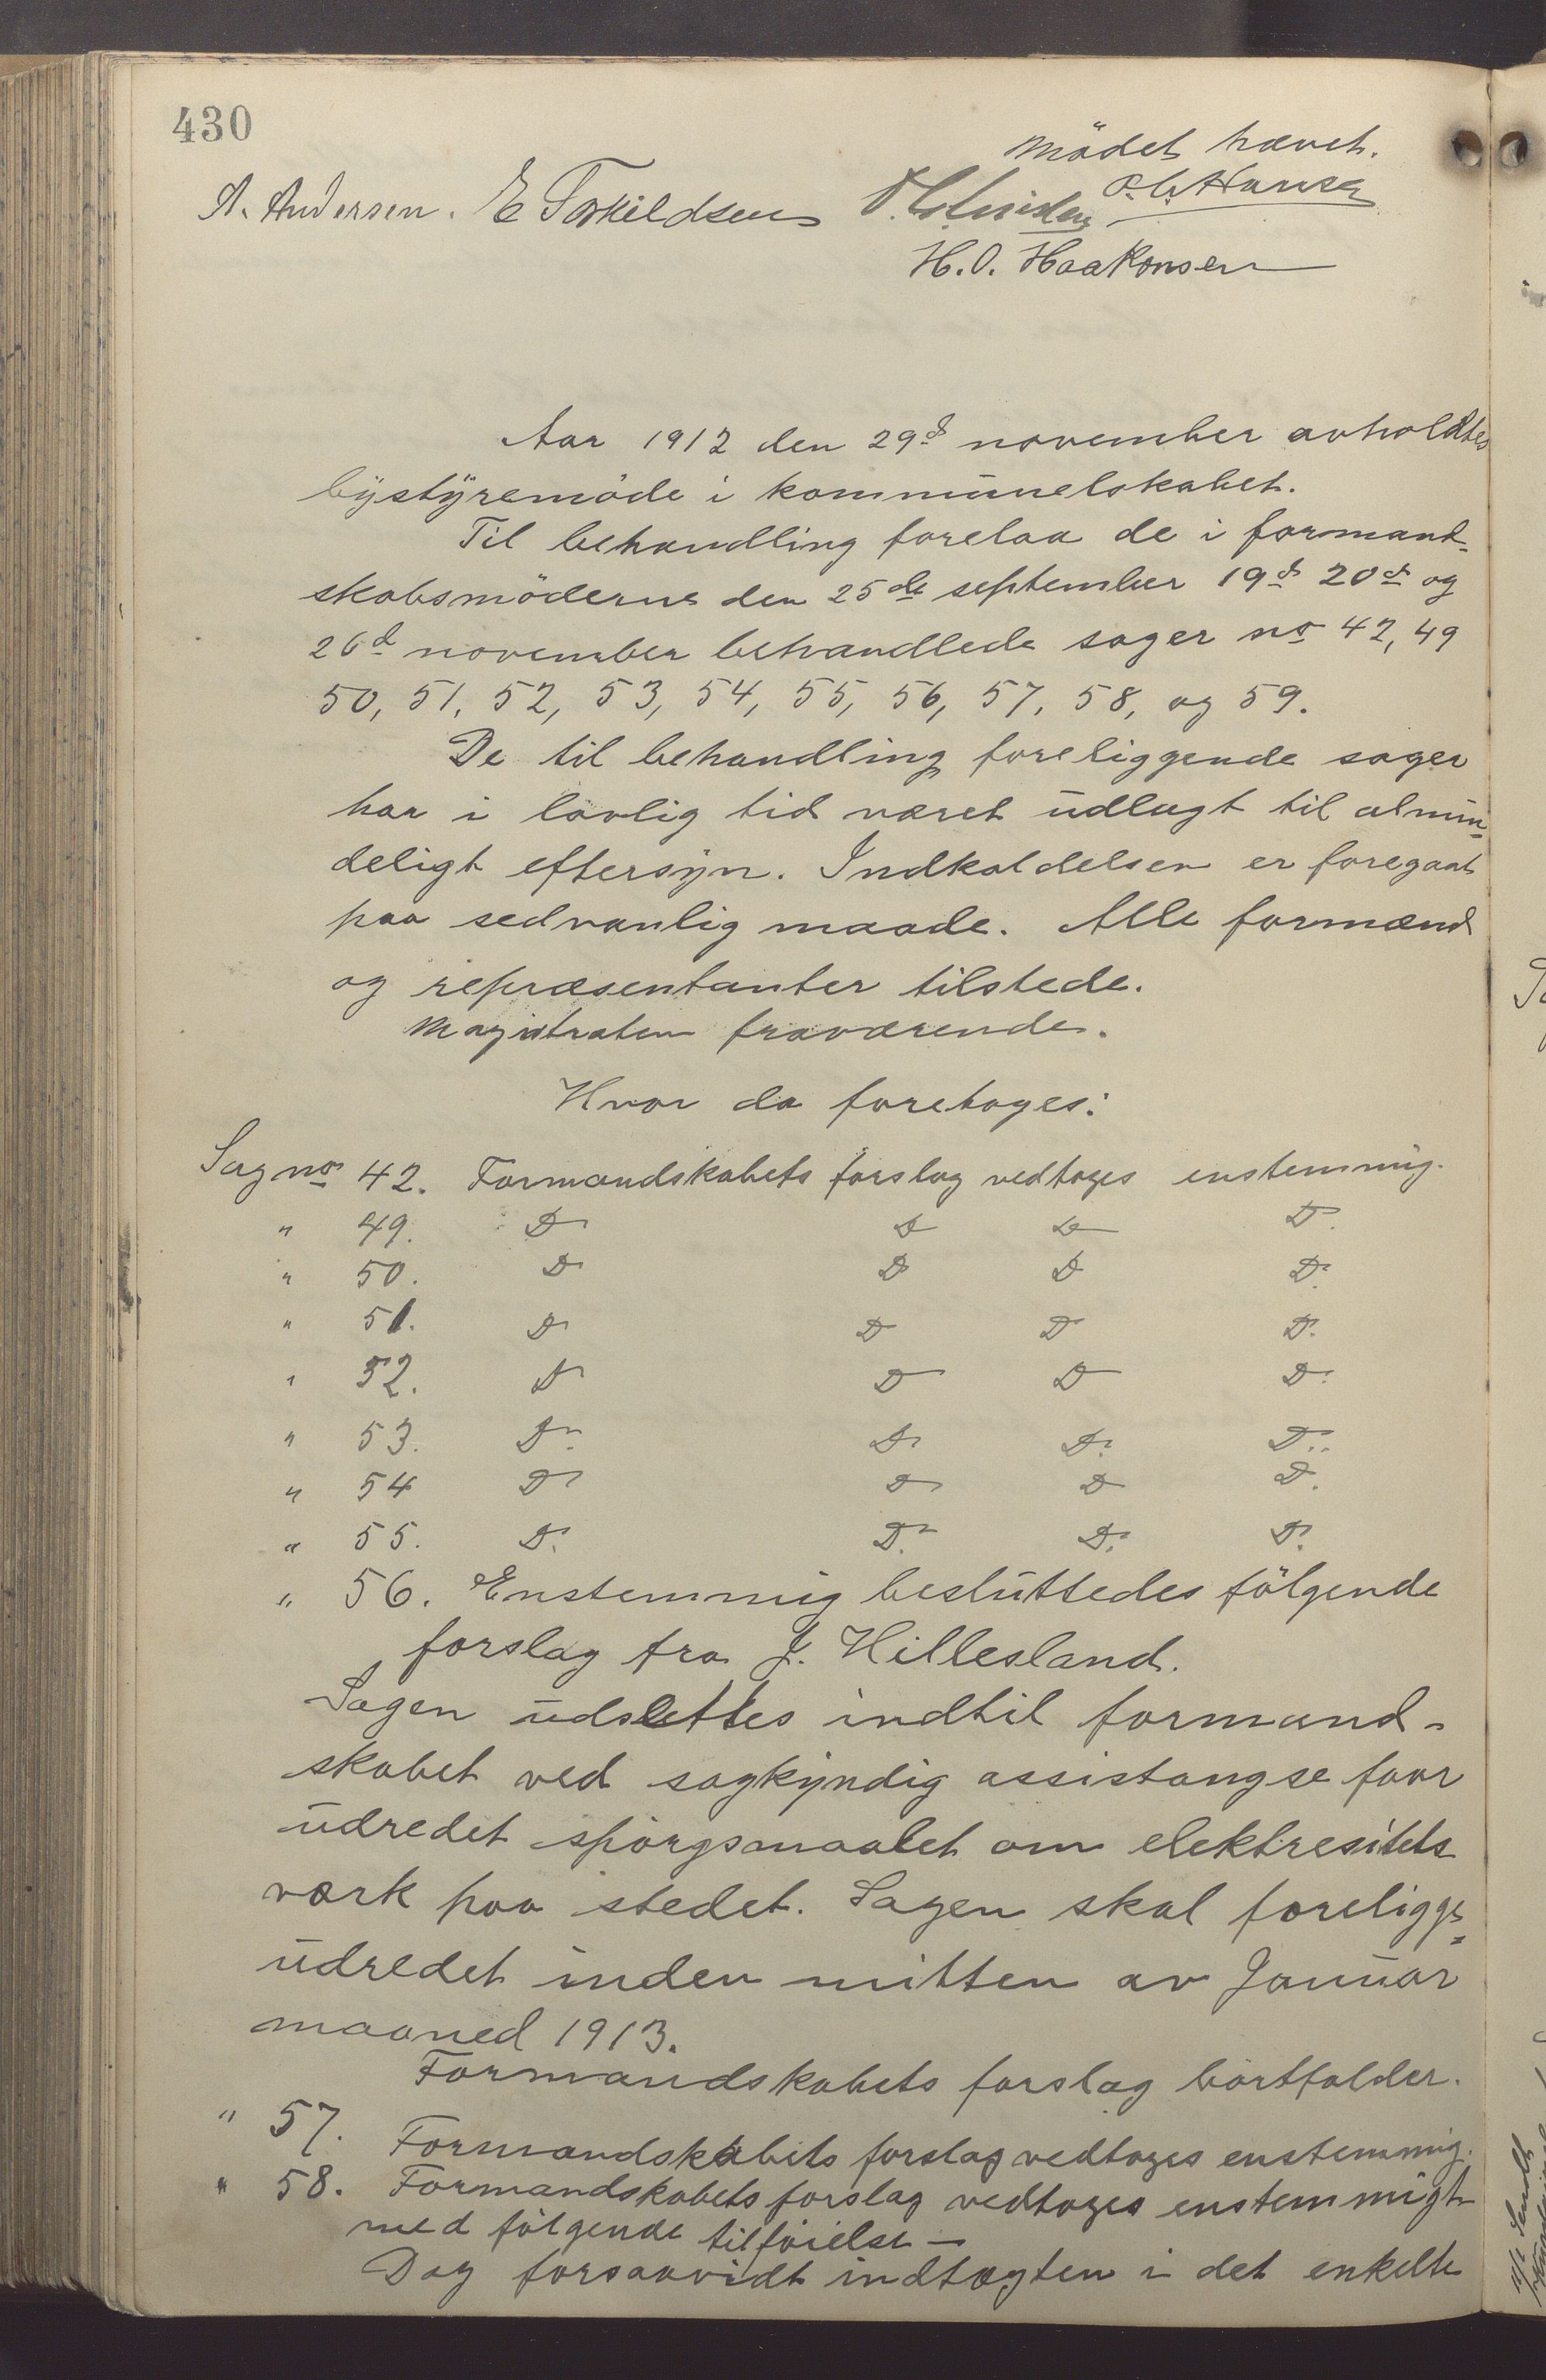 430
Mödet hævet.
A. Andersen. E Torkildsen P. C. Hansen
H. O. Haakonsen
Aar 1912 den 29d november avholdtes
bystyremöde i kommunelskabet.
Til behandling forelaa de i formand-
skabsmöderne den 25de september 19d 20d og
26d november behandlede sager no 42, 49
50, 51, 52, 53, 54, 55, 56, 57, 58, og 59.
De til behandling foreliggende sager
har i lovlig tid været udlagt til almin-
deligt eftersyn. Indkaldelsen er foregaat
paa sedvanlig maade. Alle formænd
og repræsentanter tilstede.
Magistraten fraværende.
Hvor da foretoges:
Sag no 42. Formandskabets forslag vedtoges enstemmig.
" 49. Do Do Do Do.
" 50. Do Do Do Do.
" 51. Do Do Do Do.
" 52. Do Do Do Do.
" 53. Do. Do Do. Do.
" 54 Do Do Do Do.
" 55. Do. Do. Do. Do.
" 56. Enstemmig besluttedes fölgende
forslag fra J. Hillesland.
Sagen udsættes indtil formand-
skabet ved sagkyndig assistangse faar
udredet spörgsmaalet om elektresitets
værk paa stedet. Sagen skal foreligge
udredet inden mitten av Januar
maaned 1913.
Formandskabets forslag bortfalder.
" 57. Formandskabets forslag vedtoges enstemmig.
" 58. Formandskabets forslag vedtoges enstemmigt
med fölgende tilföielse —
Dog forsaavidt indtægten i det enkelte